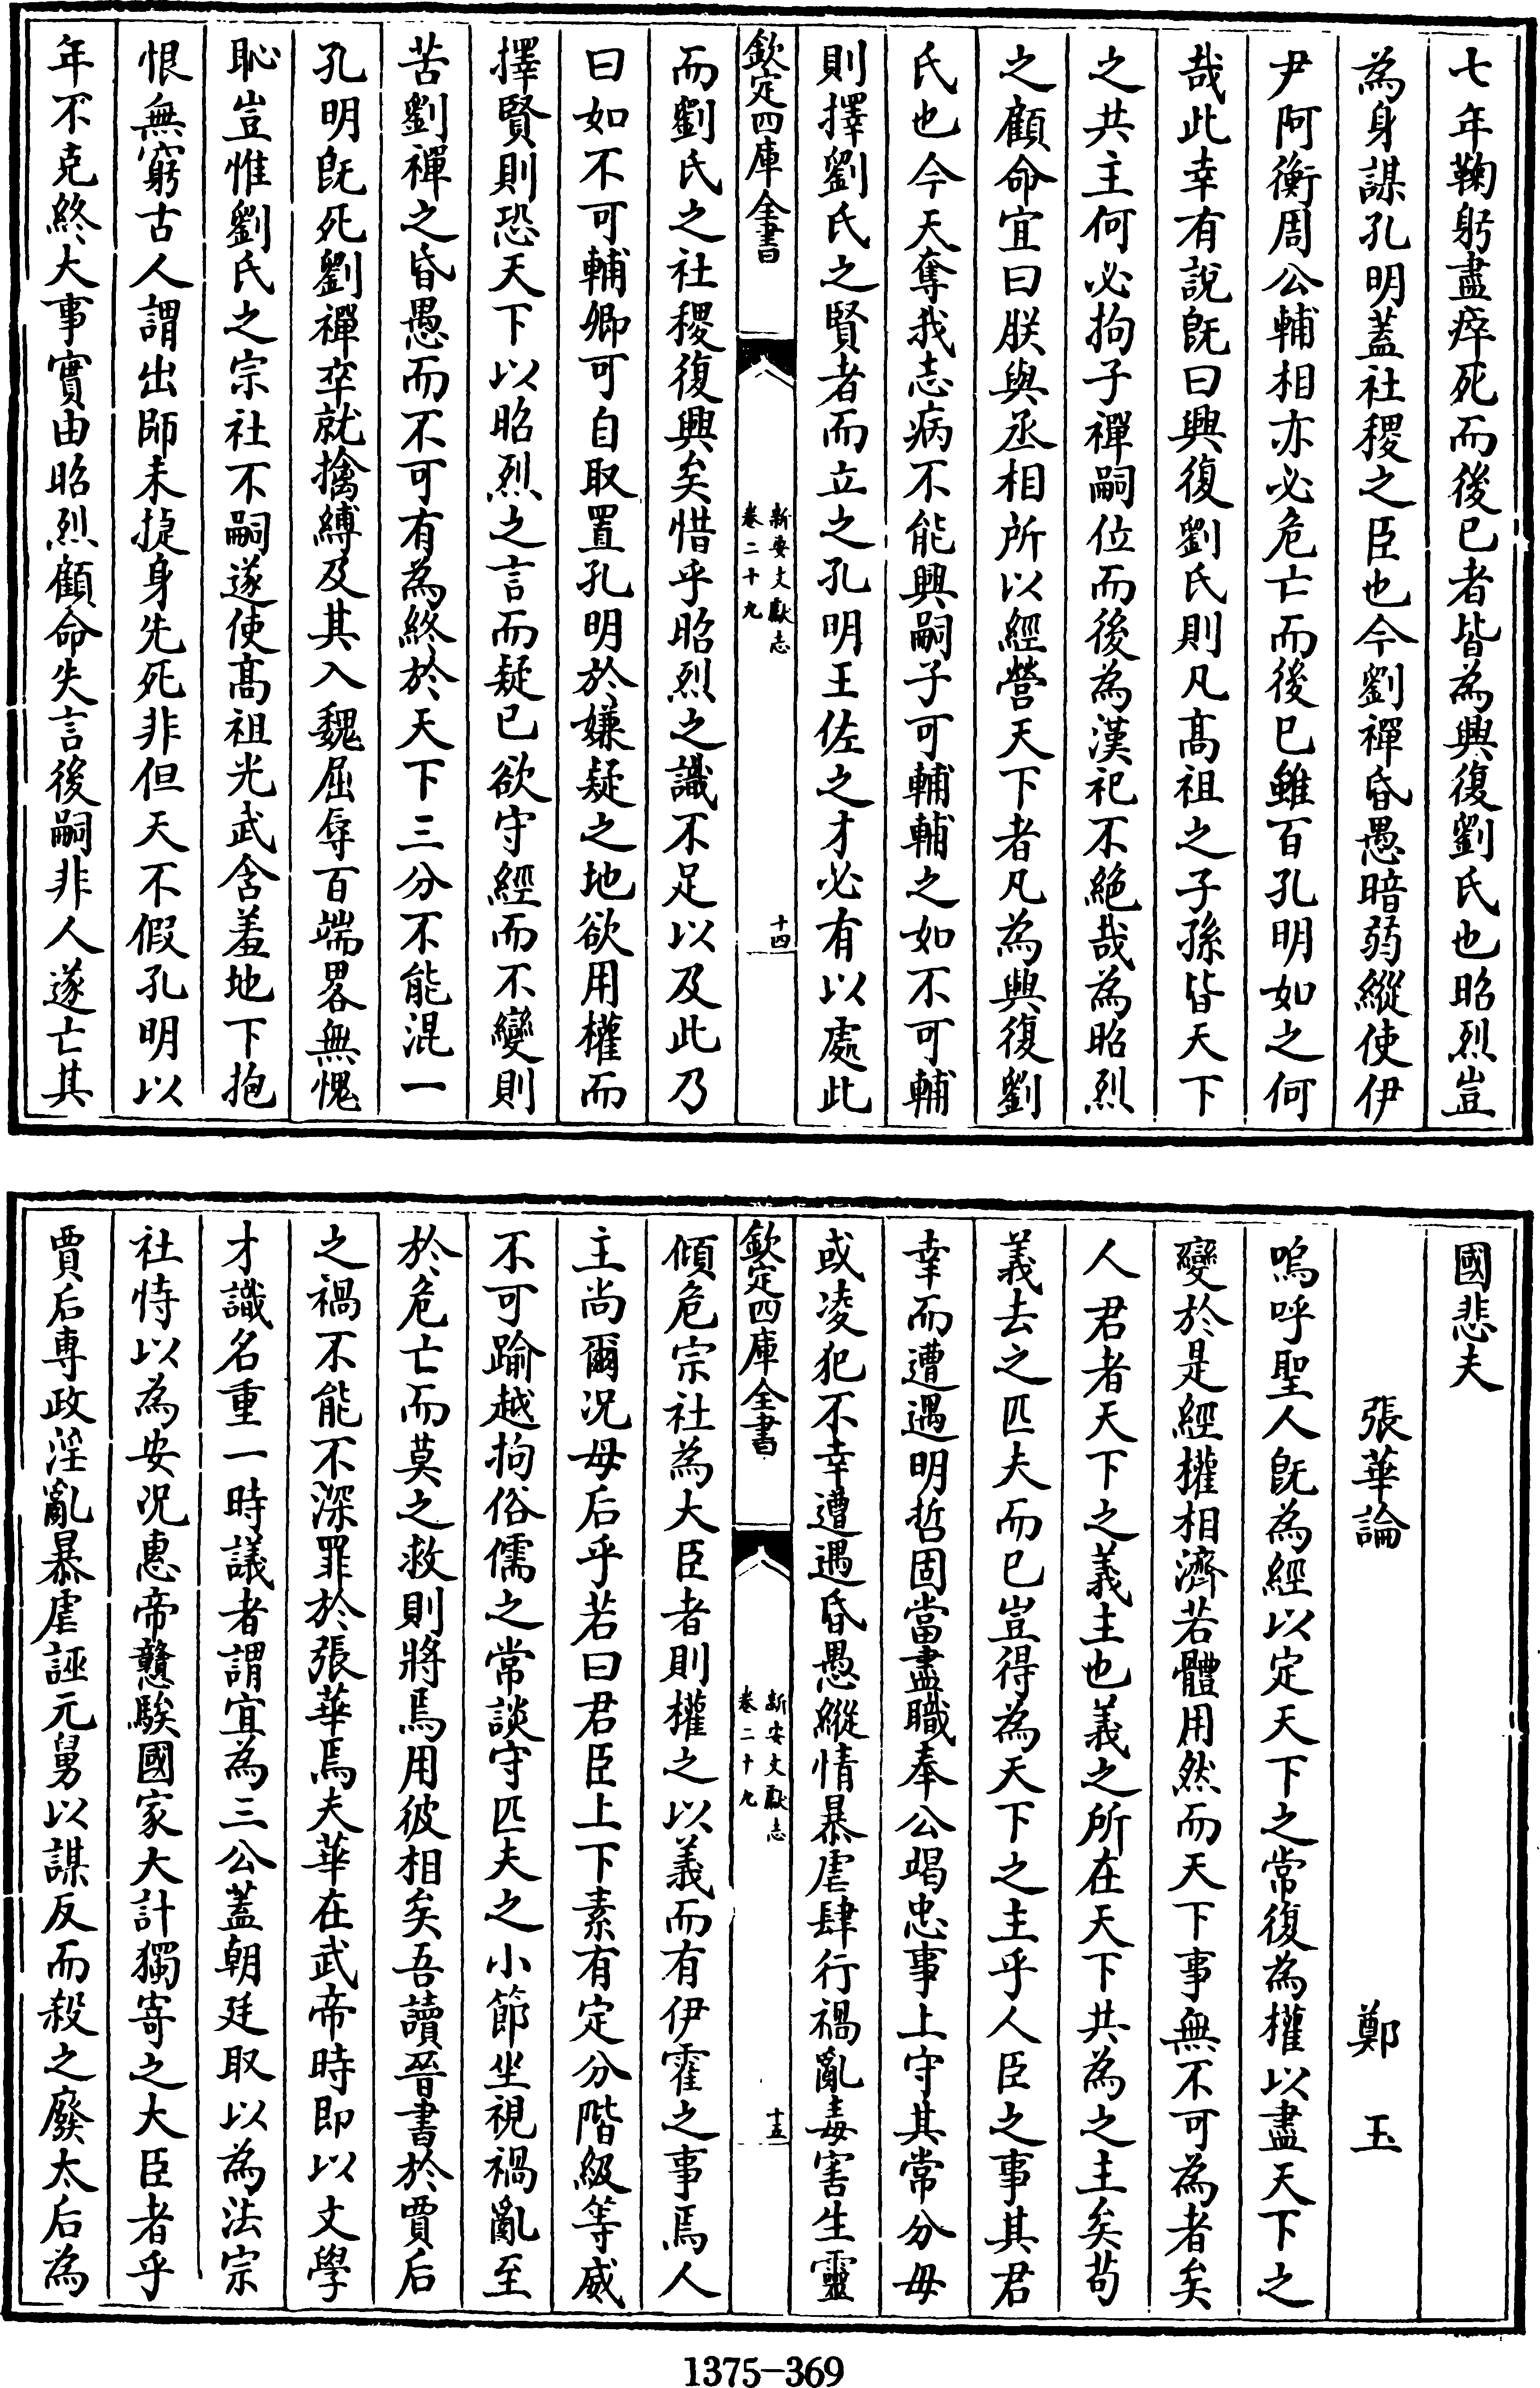 七年鞠躬盡瘁死而後已者皆為興復劉氏也昭烈豈
為身謀孔明蓋社稷之臣也今劉禪昏愚暗弱縱使伊
尹阿衡周公輔相亦必危亡而後已雖百孔明如之何
哉此幸有說既曰興復劉氏則凡高祖之子孫皆天下
之共主何必拘子禪嗣位而後為漢祀不絕哉為昭烈
之顧命宜曰朕與丞相所以經營天下者凡為興復劉
氏也今天奪我志病不能興嗣子可輔輔之如不可輔
則擇劉氏之賢者而立之孔明王佐之才必有以處此
欽定四庫全書
新安文獻志
卷二十九
十四
而劉氏之社稷復興矣惜乎昭烈之識不足以及此乃
曰如不可輔卿可自取置孔明於嫌疑之地欲用權而
擇賢則恐天下以昭烈之言而疑已欲守經而不變則
苦劉禪之昏愚而不可有為終於天下三分不能混一
孔明既死劉禪卒就擒縛及其入魏屈辱百端畧無愧
恥豈惟劉氏之宗社不嗣遂使高祖光武含羞地下抱
恨無窮古人謂出師未捷身先死非但天不假孔明以
年不克終大事實由昭烈顧命失言後嗣非人遂亡其
國悲夫
張華論 鄭玉
嗚呼聖人既為經以定天下之常復為權以盡天下之
變於是經權相濟若體用然而天下事無不可為者矣
人君者天下之義主也義之所在天下共為之主矣苟
義去之匹夫而已豈得為天下之主乎人臣之事其君
幸而遭遇明哲固當盡職奉公竭忠事上守其常分毋
或凌犯不幸遭遇昏愚縱情暴虐肆行禍亂毒害生靈
欽定四庫全書
新安文獻志
卷二十九
十五
傾危宗社為大臣者則權之以義而有伊霍之事焉人
主尚爾况母后乎若曰君臣上下素有定分階級等威
不可踰越拘俗儒之常談守匹夫之小節坐視禍亂至
於危亡而莫之救則將焉用彼相矣吾讀晉書於賈后
之禍不能不深罪於張華焉夫華在武帝時即以文學
才識名重一時議者謂宜為三公蓋朝廷取以為法宗
社恃以為安况惠帝戇騃國家大計獨寄之大臣者乎
賈后専政淫亂暴虐誣元舅以謀反而殺之廢太后為
1375-369